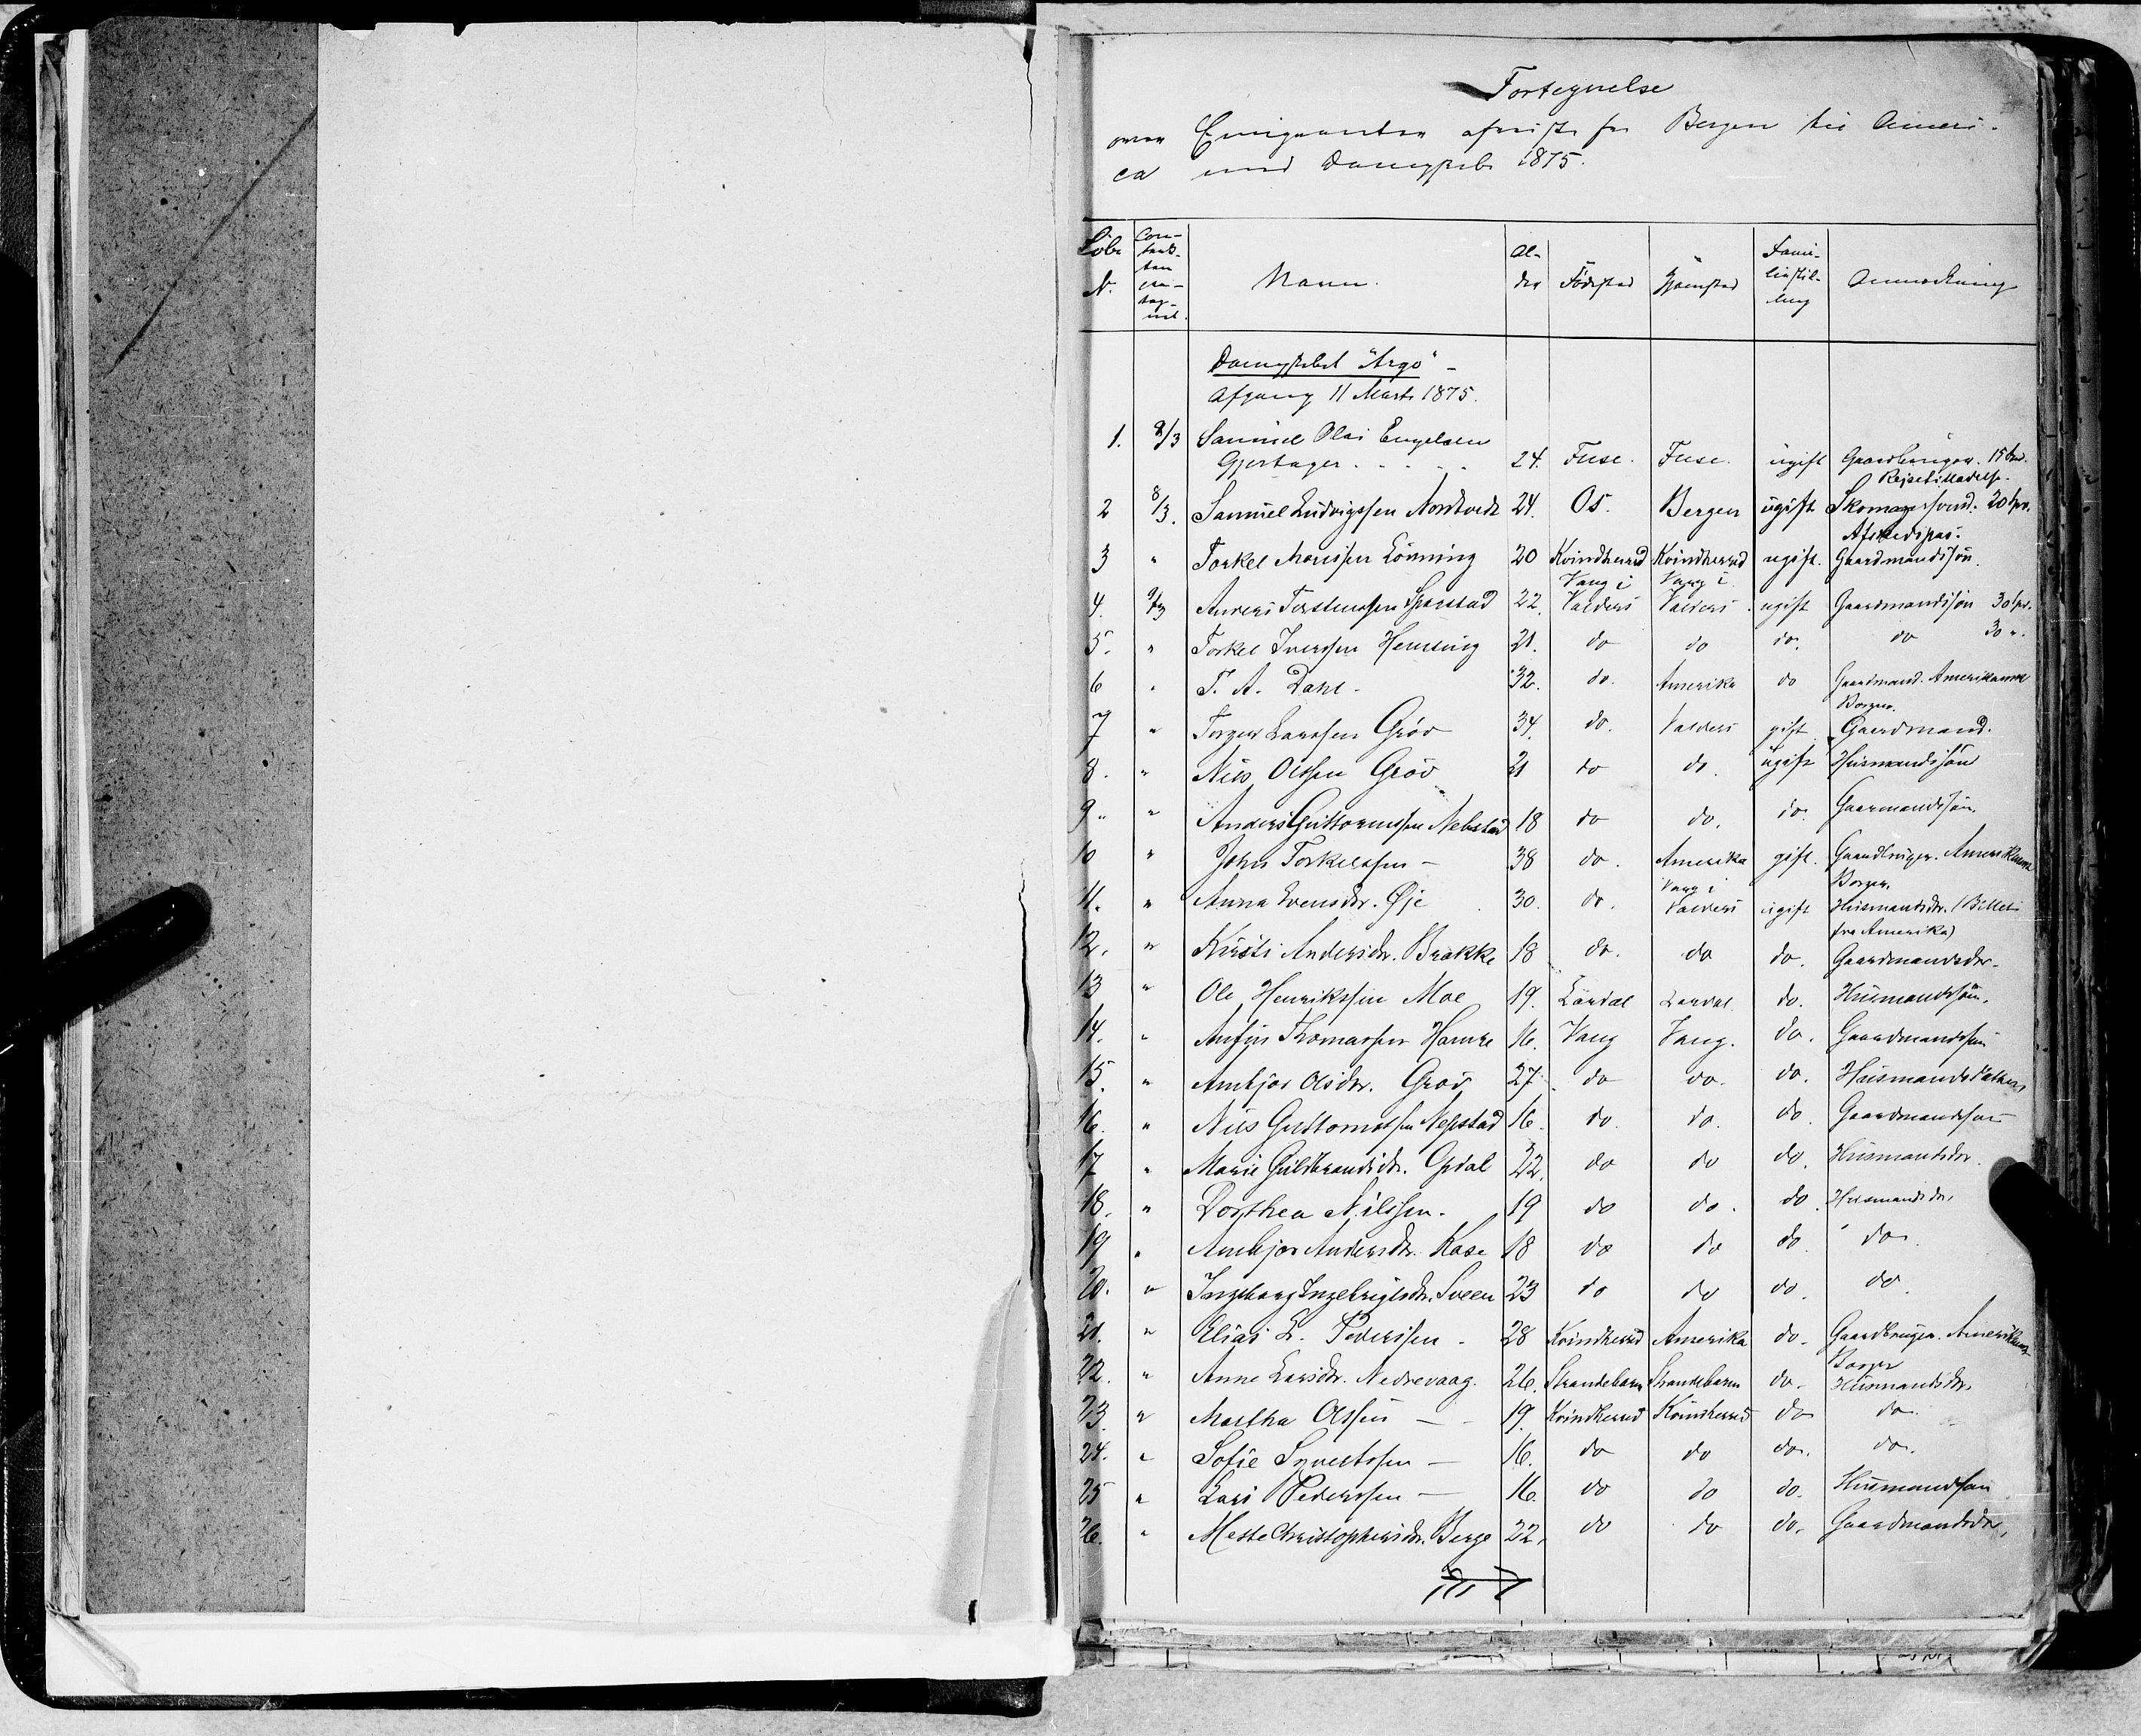 Fortegnelse
over Emigranter afreiste fra Bergen til Ameri-
ca med Dampskib 1875.
Löbe N. Con- ten Navn. Al- der Födested Hjemsted Fami- liestil- ling Anmærkning
Dampskibet "Argo" -
Afgang 11 Marts 1875.
1. 8/3 Samuel Olai Engelsen
Gjertager. 24. Fuse. Fuse. ugift Gaardbruger. 15
Rejsetilladelse.
2 8/3. Samuel Ludvigssen Nordtvedt 24. Os. Bergen ugift Skomagersvend. 20
Afskedspas.
3 " Torkel Monssen Lönning 20 Kvindherred Kvindherred ugift. Gaardmandssön.
Vang i Vang i
4. 9/3 Anders Torstenssen Sparstad 22. Valders Valders. ugift Gaardmandssön 30
5. " Torkel Iverssen Hemsing 21. do do do. do 30 ".
6 " T. A. Dahl. 32. do. Amerika do Gaardmand. Amerikansk
Borger.
7 " Torger Larssen Gröv 34. do. Valders gift Gaardmand.
8. " Nils Olssen Gröv 21 do do. ugift Husmandssön
9. " Anders Guttormssen Nebstad 18 do do. do. Gaarmandssön.
10 " John Torkelssen - 38 do. Amerika gift. Gaardbruger. Amerikansk
Borger.
Vang i
11. " Anna Svensdtr. Øje 30. do. Valders ugift Husmandsdtr. (Billet
fra Amerika)
12. " Kirsti Andersdtr. Brække 18 do. do do. Gaardmandsdtr.
13 " Ole Henrikssen Moe 19. Lærdal Lærdal do. Husmandssön.
14. " Anfin Thomassen Hamre 16. Vang Vang. do. Gaardmandssön
15. " Ambjør Olsdtr. Gröv 27. do do. do. Husmandsdatter
16. " Nils Guttormssen Nepstad 16. do. do. do. Gaardmandssön
17 " Marie Guldbrandsdtr. Opdal 22. do do do. Husmandsdtr.
18. " Dorthea Nilssen. 19 do do. do. Husmandsdtr.
19 " Ambjør Andersdtr. Kase 18 do do do. do.
20. " Ingeborg Ingebrigtsdtr. Sveen 23 do do do. do.
21. " Elias L. Pederssen - 28 Kvindherred Amerika do. Gaardbruger. Amerikansk
Borger
22. " Anne Larsdtr. Nedrevaag. 26. Strandebarm Strandebarm do. Husmandsdtr.
23. " Martha Olssen - - 19. Kvindherred Kvindherred do do.
24. " Sofie Syvertssen - 16. do do do. do.
25 " Lars Pederssen - 16. do do do. Husmandssön
26. " Mette Christophersdtr. Berge 22. do do do. Gaardmandsdtr.